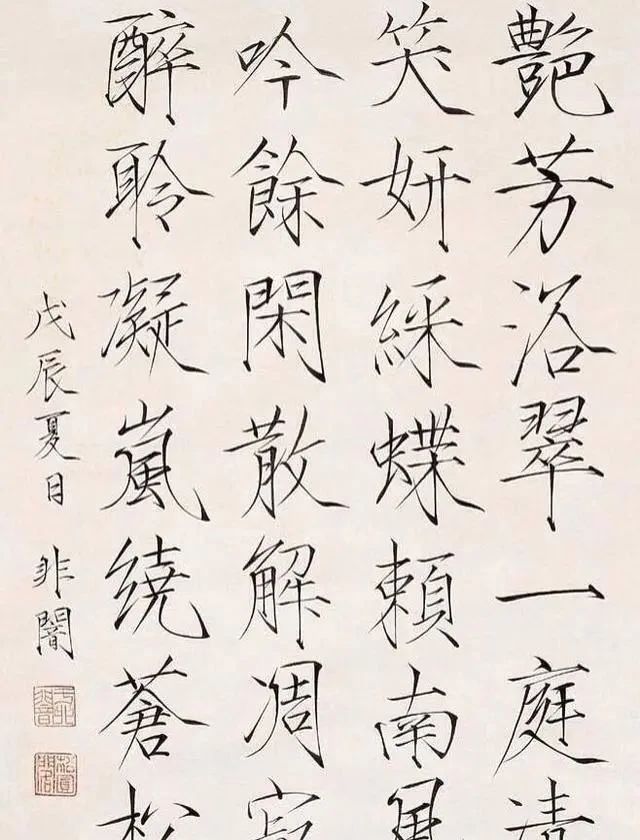 艶芳浴翠一庭清
笑妍綵蝶賴南風
吟餘閑散解凋寂
醉聆凝嵐繞蒼松
戊辰夏日 非闇